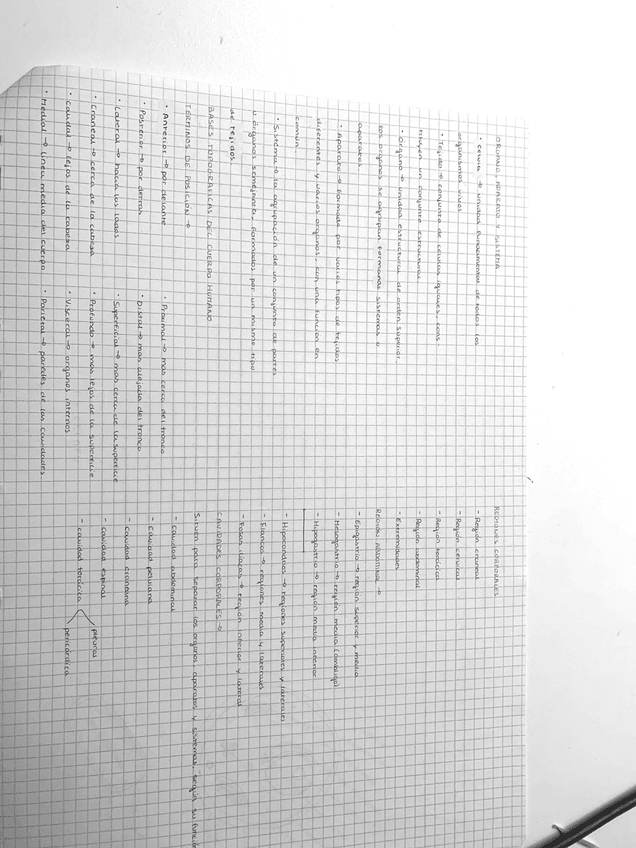 ÓRGANO, APARATO Y SISTEMA
· Célula → unidad fundamental de todos los
organismos vivos
· Tejido → conjunto de células iguales, cons-
tituyen un conjunto estructuras
· Órgano → unidad estructural de orden superior,
los órganos se agrupan formando sistemas o
aparatos
· Aparato → formado por varios tipos de tejidos
diferentes y varios órganos, con una función en
común.
· Sistema → la agrupación de un conjunto de partes
u órganos semejantes, formados por un mismo tipo
de tejidos
BASES TOPOGRÁFICAS DEL CUERPO HUMANO
TÉRMINOS DE POSICIÓN →
· Anterior → por delante
· Posterior → por detrás
· Lateral → hacia los lados
· Craneal → cerca de la cabeza
· Caudal → lejos de la cabeza
· Medial → línea media del cuerpo
· Proximal → más cerca del tronco
· Distal → más alejada del tronco
· Superficial → más cerca de la superficie
· Profundo → más lejos de la superficie
· Visceral → órganos internos
· Parietal → paredes de las cavidades
REGIONES CORPORALES
- Región craneal
- Región cervical
- Región torácica
- Región abdominal
- Extremidades
REGIÓN ABDOMINAL →
- Epigastrio → región superior y media
- Mesogastrio → región media (ombligo)
- Hipogastrio → región media inferior
- Hipocondrios → regiones superiores y laterales
- Flancos → regiones media y laterales
- Fosas ilíacas → región inferior y lateral
CAVIDADES CORPORALES →
Sirven para separar los órganos, aparatos y sistemas, según su función
- Cavidad abdominal
- Cavidad pelviana
- Cavidad craneana
- Cavidad espinal
- Cavidad torácica
pleural
pericárdica